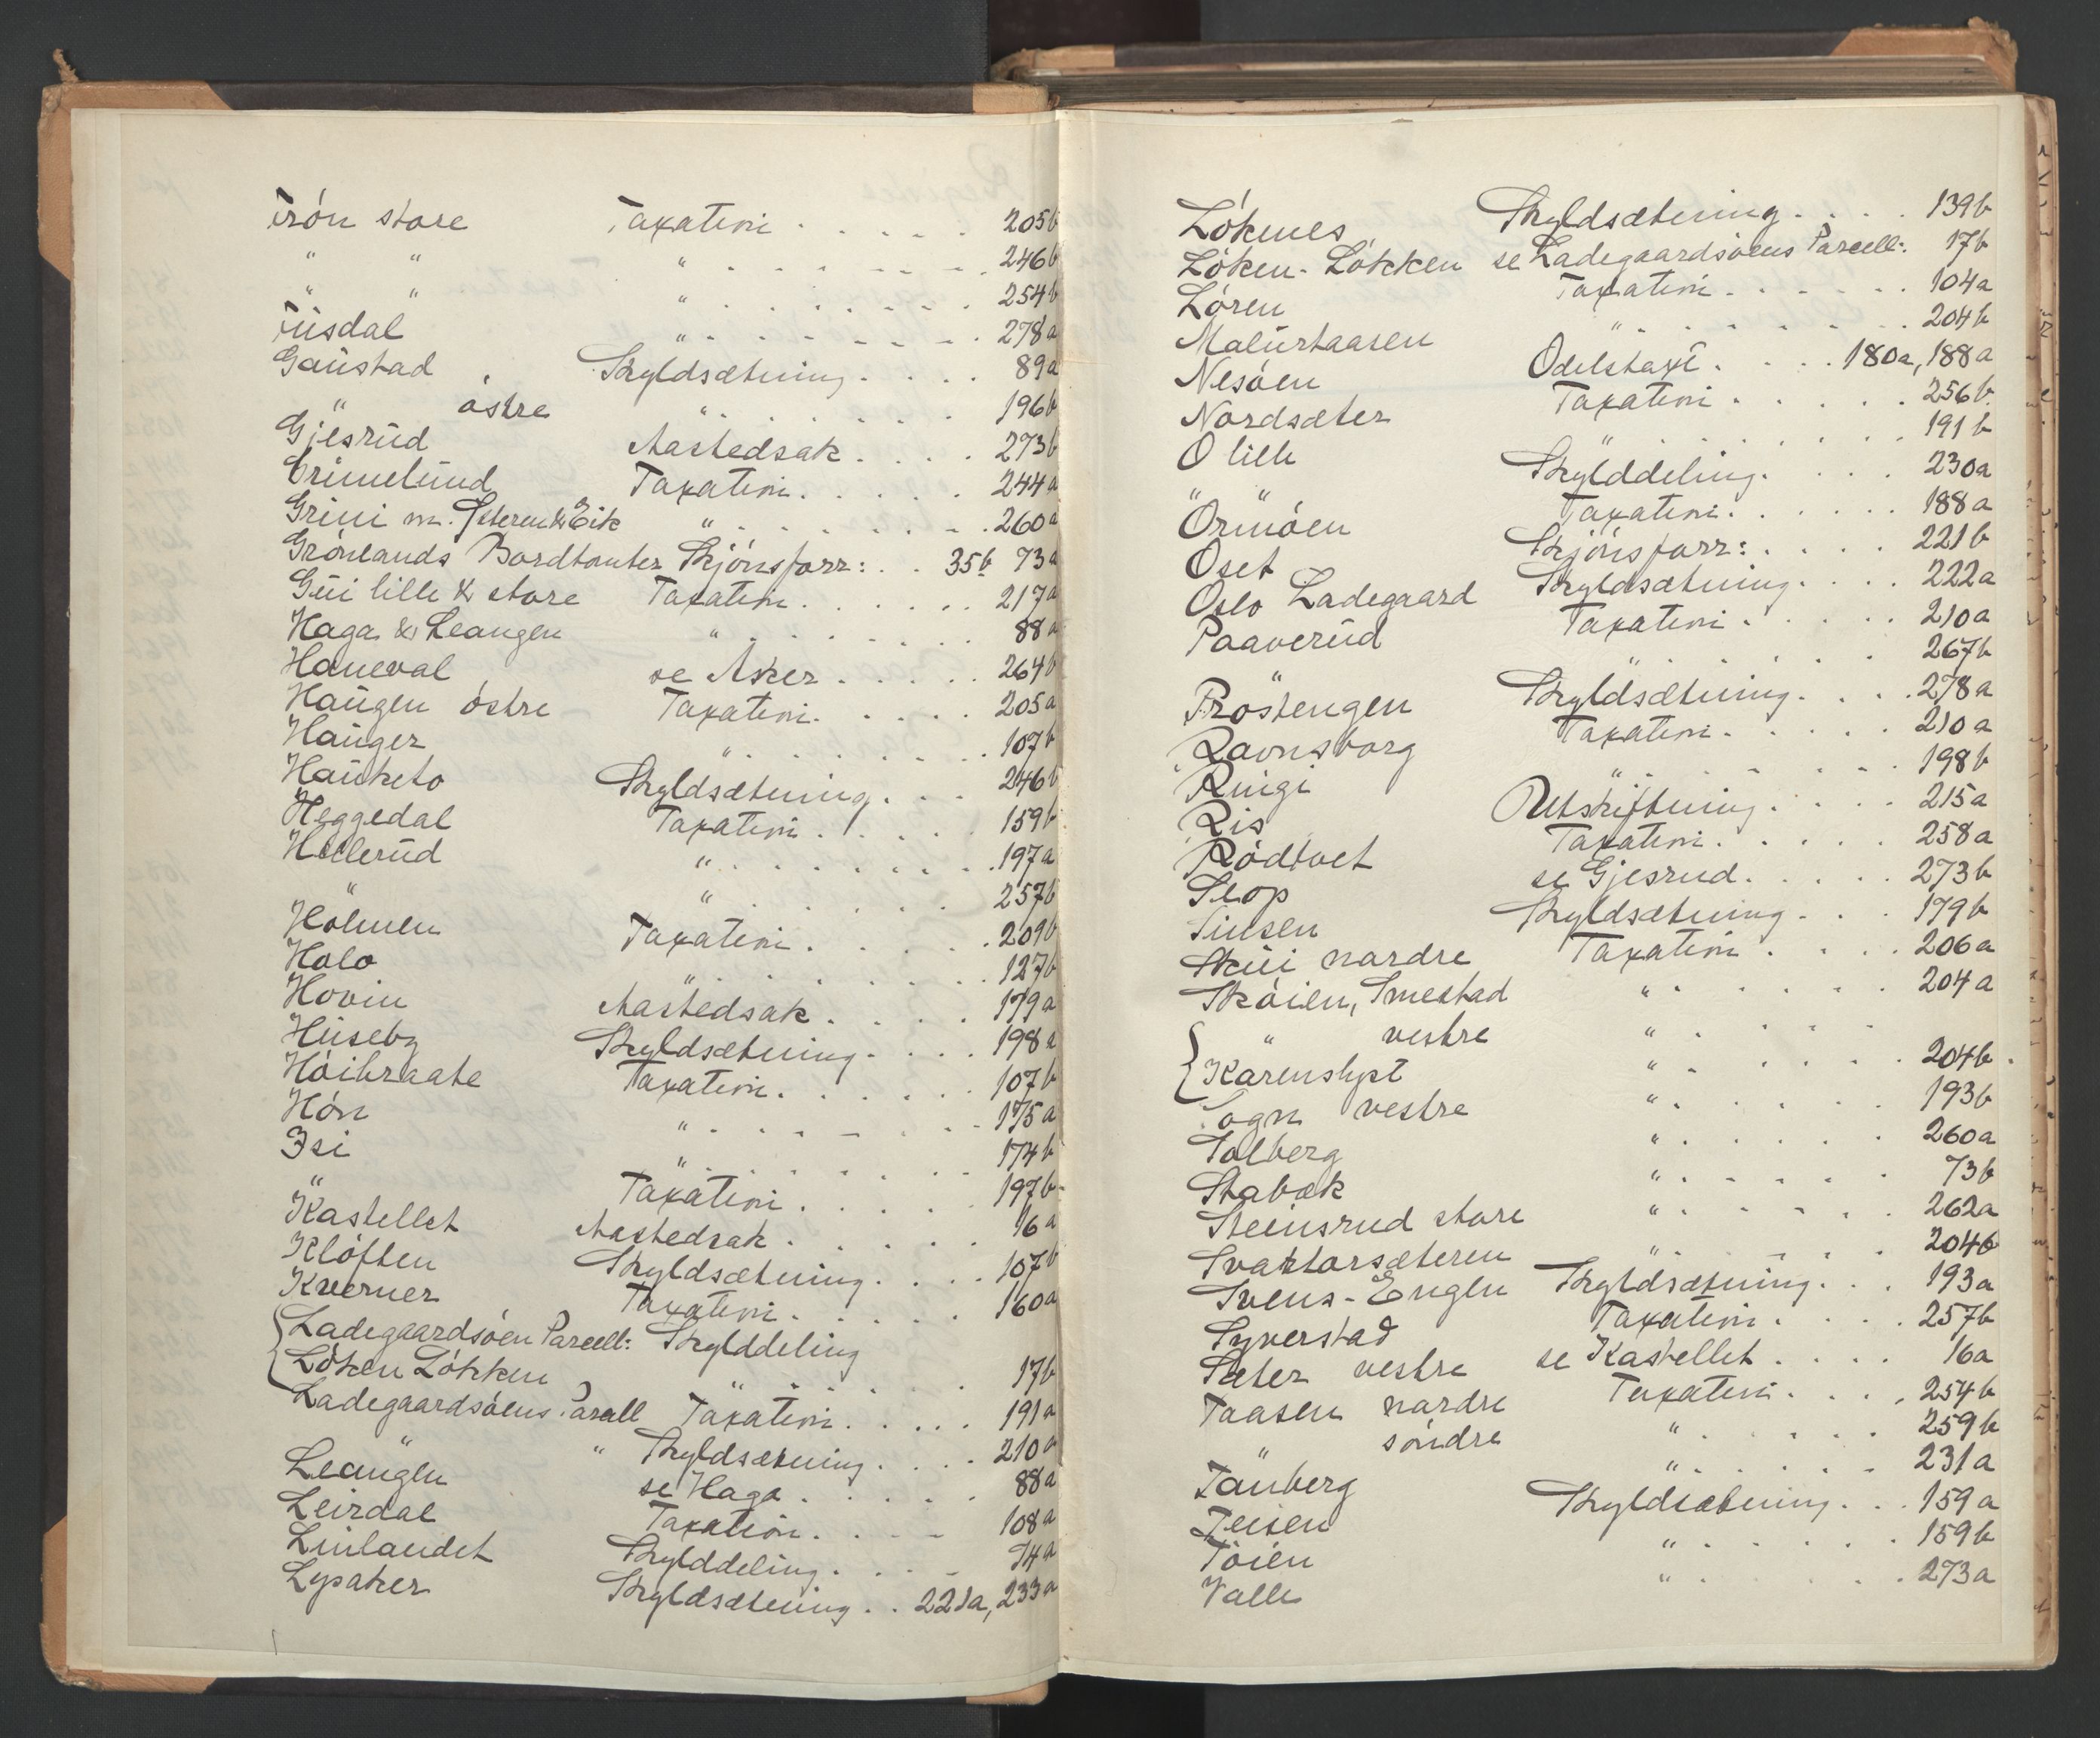 Frön store Taxation . . . . . 205b
" " " . . . . . . . 246b
" " " . . . . . . . 254b
Fusdal " . . . . . . . 278a
Gaustad Skyldsætning . . . . 89a
" östre " . . . . . . . 196b
Gjesrud Aastedsak . . . . 273b
Grimelund Taxation . . . . . 244a
Grini m. Ysteren & Eik " . . . . . . . 260a
Grönlands Bordtomter Skjönsforr: . . 35b 73a
Gui lille & store Taxation . . . . . . 217a
Haga & Leangen " . . . . . . . 88a
Haneval se Asker . . . . . 264b
Haugen östre Taxation . . . . . 205a
Hauger " . . . . . . . 107b
Hauketo Skyldsætning . . . 246b
Heggedal Taxation . . . . . 159b
Hellerud " . . . . . . . 197a
" " . . . . . . . 257b
Holmen Taxation . . . . . 209b
Holo " . . . . . . . 127b
Hovin Aastedsak . . . . 179a
Huseby Skyldsætning . . . . 198a
Höibraate Taxation . . . . . . 107b
Hön " . . . . . . . 175a
Isi " . . . . . . . 174b
" Taxation . . . . . 197b
Kastellet Aastedsak . . . . . 16a
Klöften Skyldsætning . . . . 107b
Kverner Taxation . . . . . 160a
Ladegaardsöen Parcell: Skylddeling
Löken Lökken " . . . . . . 17b
Ladegaardsöens Parcell Taxation . . . . . 191a
" " Skyldsætning . . . . 210a
Leangen se Haga . . . . . 88a
Leirdal Taxation . . . . 108a
Linlandet Skylddeling . . . . 74a
Lysaker Skyldsætning . . 221a, 233a
Lökenes Skyldsætning . . . . 139b
Löken - Lökken se Ladegaardsöens Parcell: 17b
Lören Taxation . . . . . . 104a
Malurhaasen " . . . . . . . 204b
Nesöen Odelstaxt . . . . 180a, 188a
Nordsæter Taxation . . . . . 256b
O lille " . . . . . . . 191b
" " Skylddeling . . . . 230a
Ormöen Taxation . . . . . . 188a
Oset Skjönsforr: . . . . 221b
Oslo Ladegaard Skyldsætning . . . . 222a
Paaverud Taxation . . . . . 210a
" " . . . . . . 267b
Pröstengen Skyldsætning . . . . 278a
Ravnsborg Taxation . . . . . 210a
Ringi " . . . . . . . 198b
Ris Utskiftning . . . . . 215a
Rödtvet Taxation . . . . . 258a
Seop se Gjesrud . . . . . 273b
Sinsen Skyldsætning . . . 179b
Skui nordre Taxation . . . . 206a
Sköien, Smestad " . . . . . . 204a
" vestre " . . . . .
Karenslyst " . . . . . . 204b.
Sogn vestre " . . . . . 193b
Solberg " . . . . . . 260a
Stabæk " . . . . . . 73b
Steinsrud store " . . . . . 262a
Svartorsæteren " . . . . . . 204b
Svens - Engen Skyldsætning . . . 193a
Syverstad Taxation . . . . 257b
Sæter vestre se Kastellet . . . . 16a
Taasen nordre Taxation . . . . 254b
" söndre " . . . . . . 259b
Tanberg " . . . . . . 231a
Teisen Skyldsætning . . . 159a
Töien " . . . . . . 159b
Valle " . . . . . . 273a